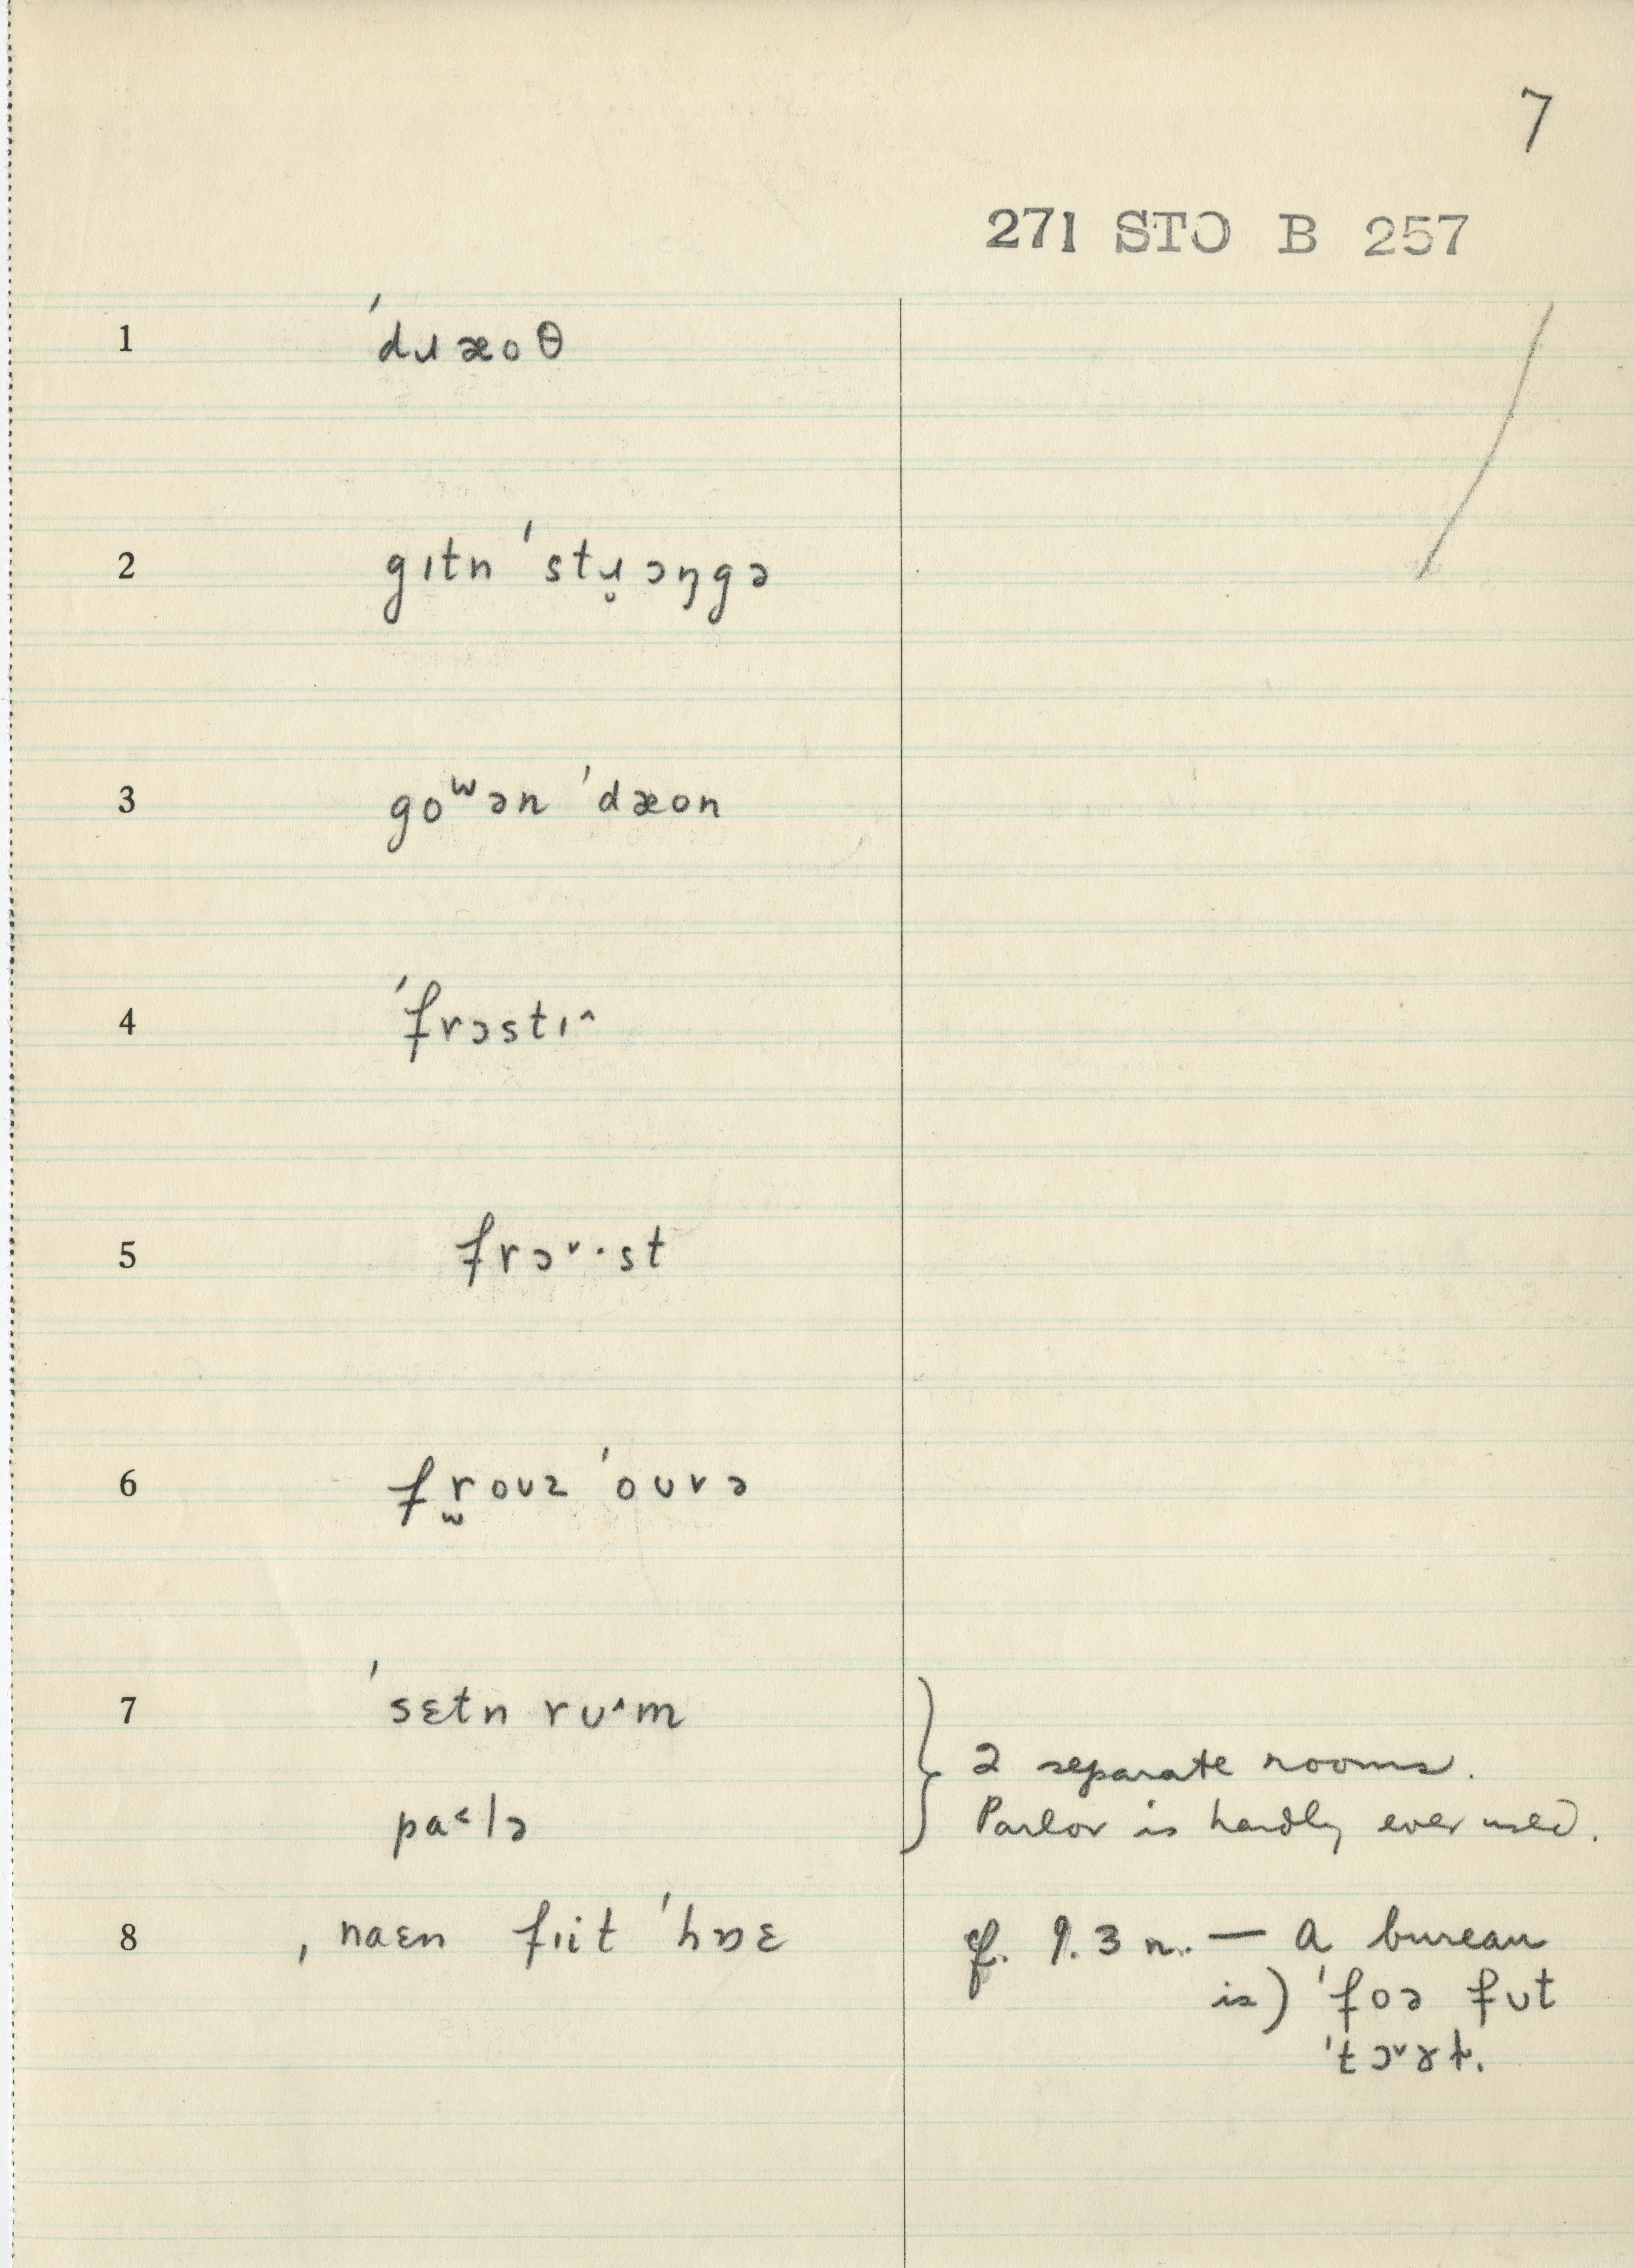 7
271 STO B 257
1 ˈdɹæoθ
2 gɪtn ˈstɹ̬ɔŋgə
3 goʷən ˈdæon
4 ˈfrɔstɪ^
5 frɔ˅·st
6 fr̫oʊz ˈoʊvə
7 ˈsɛtn rʊ˄m
2 separate rooms.
pa˂lə
Parlor is hardly ever used.
8 ˌnaɛn fɪit ˈhɒɛ
cf. 9.3 n. — A bureau
is) ˈfoə fʊt
ˈtɔ˅ɤt.